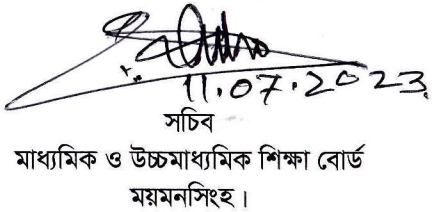 11.07.2023
সচিব
মাধ্যমিক ও উচ্চমাধ্যমিক শিক্ষা বোর্ড
ময়মনসিংহ।